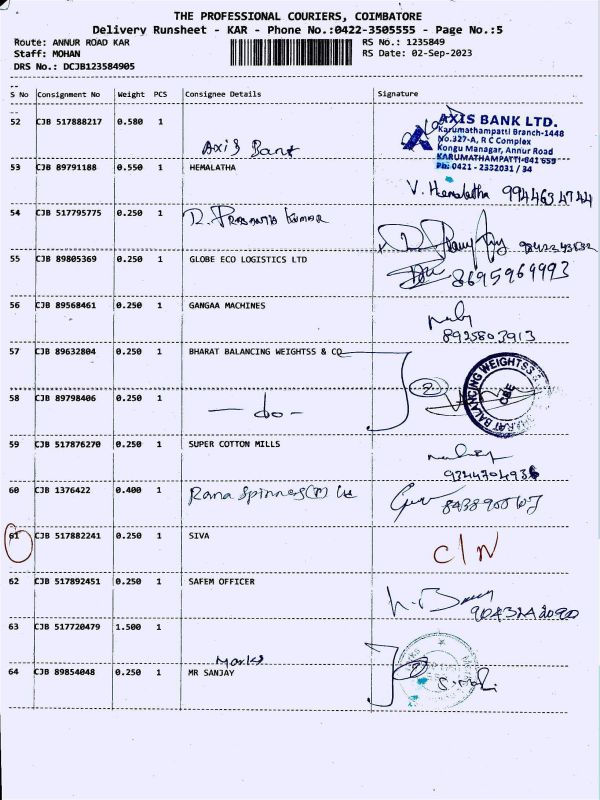 THE PROFESSIONAL COURIERS, COIMBATORE
Delivery Runsheet - KAR - Phone No.:0422-3505555 - Page No.:5
Route: ANNUR ROAD KAR
RS No.: 1235849
Staff: MOHAN
RS Date: 02-Sep-2023
DRS No.: DCJB123584905
S No Consignment No Weight PCS Consignee Details Signature
52 CJB 517888217 0.580 1
Axis Bank
AXIS BANK LTD.
Karumathampatti Branch-1448
No.327-A, R C Complex
Kongu Managar, Annur Road
KARUMATHAMPATTI-641 659
Ph: 0421 - 2332031 / 34
53 CJB 89791188 0.550 1 HEMALATHA
V. Hemalatha 9944634744
54 CJB 517795775 0.250 1 R. Prasanth Kumar
55 CJB 89805369 0.250 1 GLOBE ECO LOGISTICS LTD
8695969993
56 CJB 89568461 0.250 1 GANGAA MACHINES
8925803913
57 CJB 89632804 0.250 1 BHARAT BALANCING WEIGHTSS & CO
BHARAT BALANCING WEIGHTSS
CBE
58 CJB 89798406 0.250 1 — do —
2
59 CJB 517876270 0.250 1 SUPER COTTON MILLS
60 CJB 1376422 0.400 1 Rana Spinners (P) Ltd
61 CJB 517882241 0.250 1 SIVA
C/N
62 CJB 517892451 0.250 1 SAFEM OFFICER
63 CJB 517720479 1.500 1
Marks
64 CJB 89854048 0.250 1 MR SANJAY